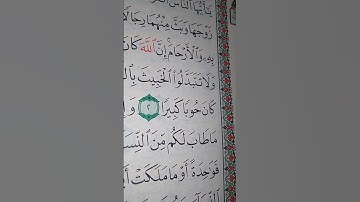 يَٰٓأَيُّهَا ٱلنَّاسُ
زَوْجَهَا وَبَثَّ مِنْهُمَا رِجَالًا
بِهِۦ وَٱلْأَرْحَامَ إِنَّ ٱللَّهَ كَانَ
وَلَا تَتَبَدَّلُوا۟ ٱلْخَبِيثَ
كَانَ حُوبًا كَبِيرًا ٢
مَا طَابَ لَكُم مِّنَ ٱلنِّسَ
فَوَٰحِدَةً أَوْ مَا مَلَكَتْ